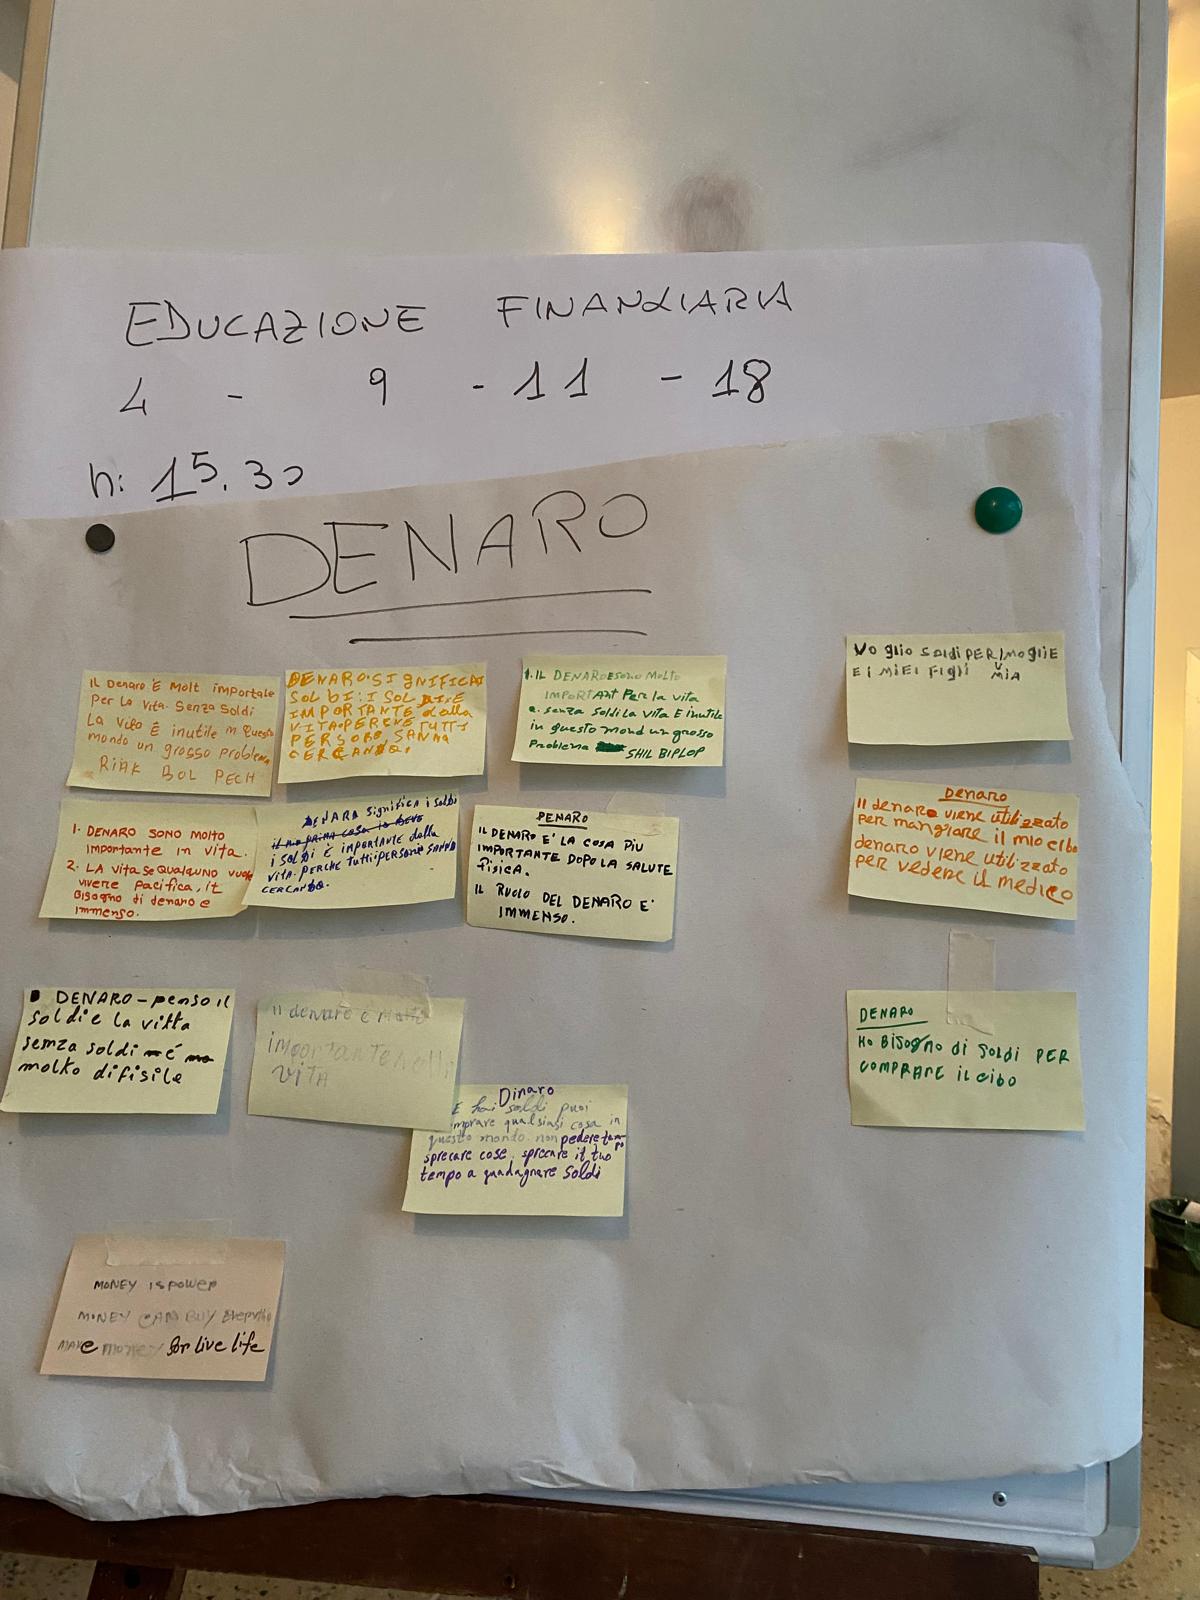 EDUCAZIONE FINANZIARIA
4 - 9 - 11 - 18
h: 15.30
DENARO
IL Denaro È MOLT importale
Per La Vita. Senza Soldi
La Vita È inutile in Questo
mondo un grosso problema
RIAK BOL PECH
DENARO SIGNIFICA
SOLDI: I SOLDI È
IMPORTANTE dalla
VITA. PERCHE TUTTI
PERSONE SANNA
CERCANDO.
1. IL DENARO ESONO MOLTO
IMPORTANT Per la vita
e. senza Soldi La Vita E inutile
in questo mond un grosso
Problema SHIL BIPLOP
VO glio Soldi PER MOGLIE
E I MIEI Figli MIA
1. DENARO SONO MOLTO
importante in vita.
2. LA vita se Qualcuno vuole
vivere pacifica, it
Bisogno di denaro e
immenso.
DENARA significa i soldi
i SOLDI È IMPORTANTE dalla
VITA. PERCHE TUTTI PERSONE SANNA
CERCANDO.
DENARO
IL DENARO E' LA COSA PIÙ
IMPORTANTE DOPO LA SALUTE
FISICA.
IL RUOLO DEL DENARO E'
IMMENSO.
Denaro
il denaro viene utilizzato
per mangiare il mio cibo
denaro viene utilizzato
per vedere il medico
DENARO - penso il
soldi e la vitta
semza soldi é
molto difisile
il denaro e Molto
importante nella
VITA
DENARO
HO BISOGNO di SOLDI PER
COMPRARE IL CIBO
Dinaro
E hai soldi puoi
mprare qualsiasi cosa in
questo mondo. non pedere tempo
sprecare cose. sprecare il tuo
tempo a guadagnare soldi
MONEY IS POWER
MONEY CAN BUY
MAKE money for live life